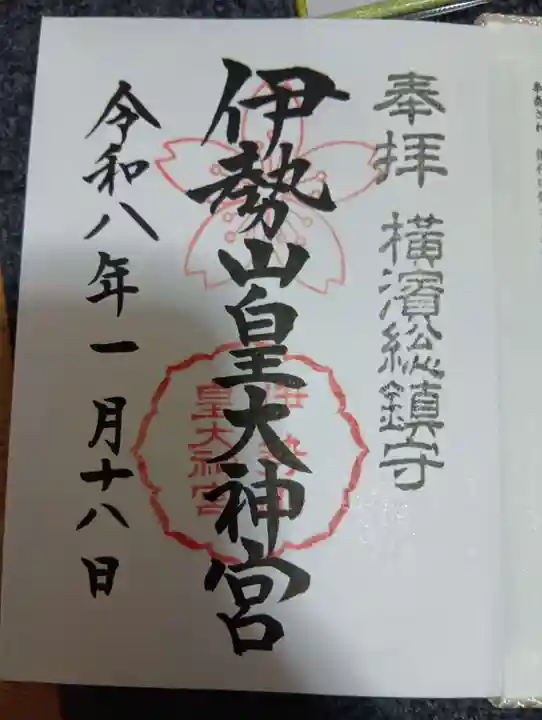 奉拝 横濱総鎮守
伊勢山皇大神宮
伊勢山
皇大神宮
令和八年一月十八日